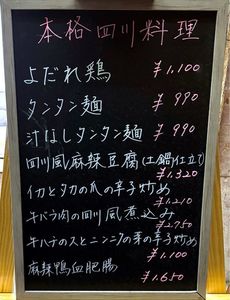 本格四川料理
よだれ鶏 ¥1,100
タンタン麺 ¥990
汁なしタンタン麺 ¥990
四川風麻辣豆腐(土鍋仕立て)
¥1,320
イカとタカの爪の辛子炒め
¥1,210
牛バラ肉の四川風煮込み
¥2,750
牛ハチノスとニンニクの芽の辛子炒め
¥1,100
麻辣鴨血肥腸
¥1,650